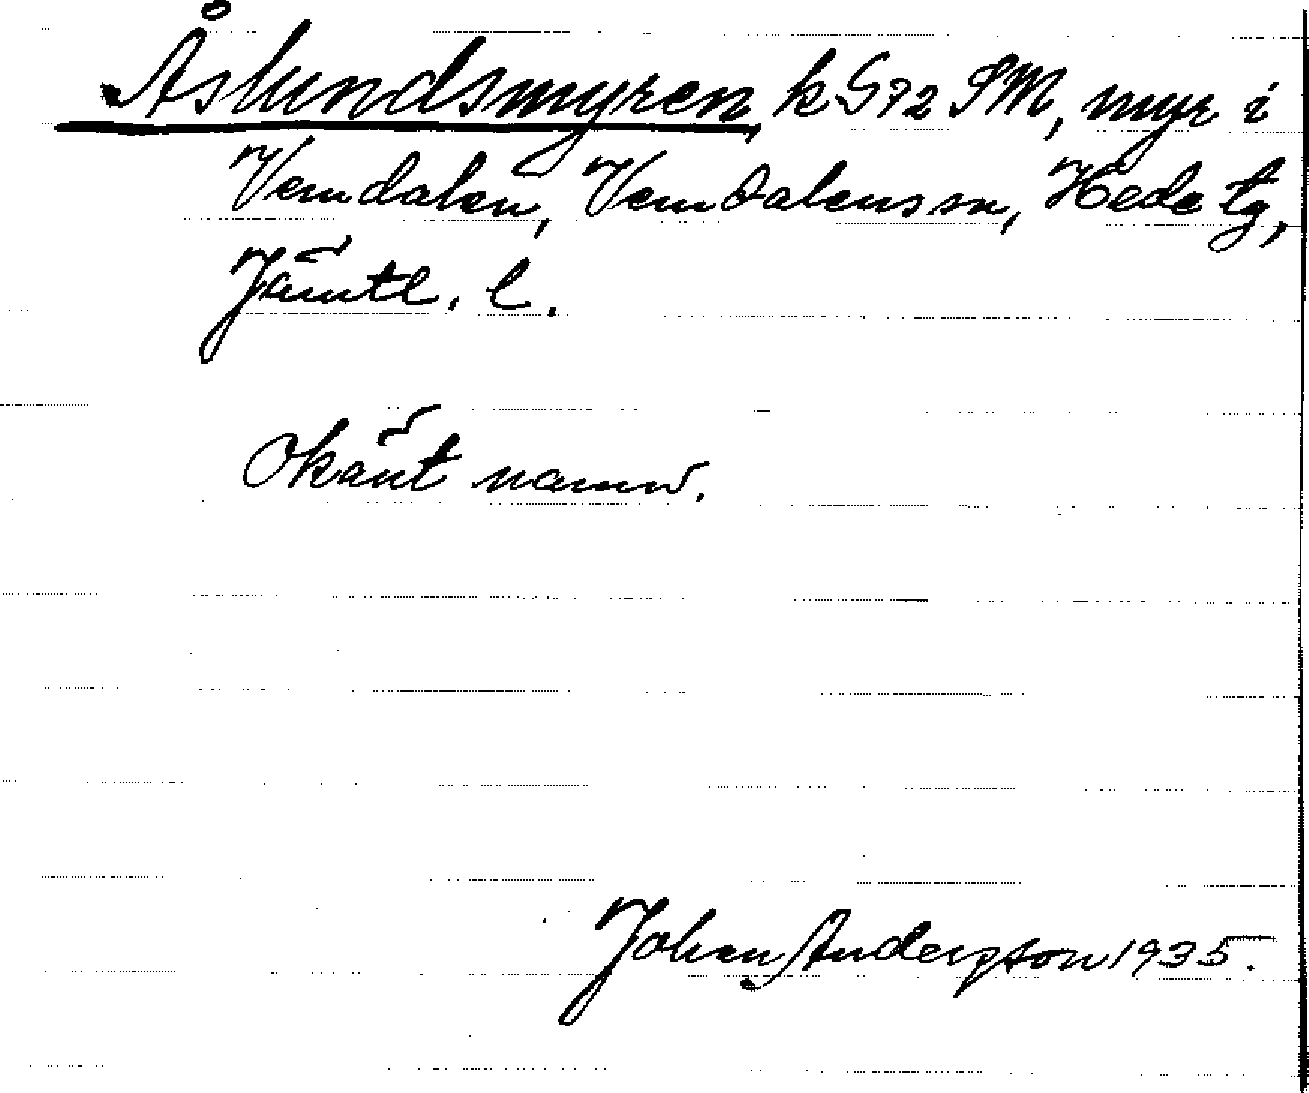 Åslundsmyren, k G72 SM, myr i
Vemdalen, Vemdalens sn, Hede tg,
Jämtl. l.
Okänt namn.
Johan Andersson 1935.